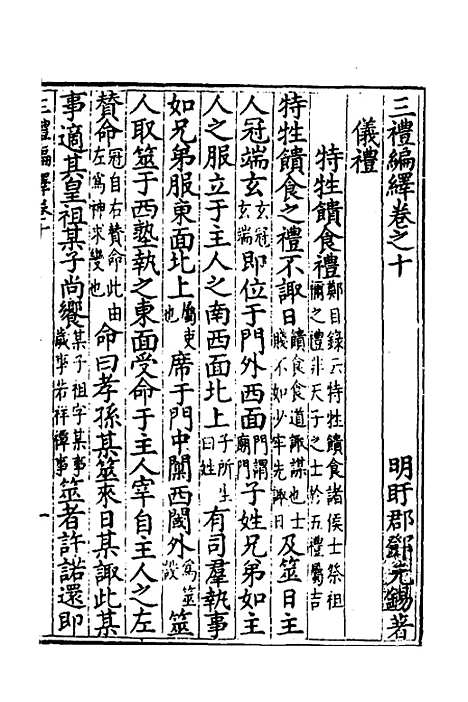 三禮編繹卷之十　明盱郡鄧元錫著
儀禮
特牲饋食禮鄭目錄云特牲饋食諸侯士祭祖禰之禮非天子之士於五禮屬吉
特牲饋食之禮不諏日饋食食道諏謀也士賤不如少牢先諏日及筮日主
人冠端玄玄冠玄端即位于門外西面門謂廟門子姓兄弟如主
人之服立于主人之南西面北上子所生曰姓有司羣執事
如兄弟服東面北上屬吏也席于門中闑西閾外爲筮設筮
人取筮于西塾執之東面受命于主人宰自主人之左
贊命冠自右贊命此由左爲神求變也命曰孝孫某筮來日某諏此某
事適其皇祖某子尚饗某子祖字某事歲事若祥禫事筮者許諾還即
三禮編繹卷十　一